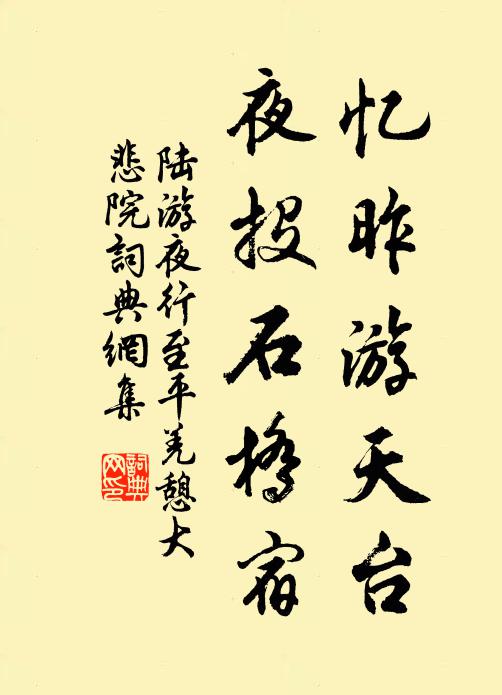 忆昨游天台
夜投石桥宿
陆游夜行至平羌憩大
悲院詞典網集
詞典
网印